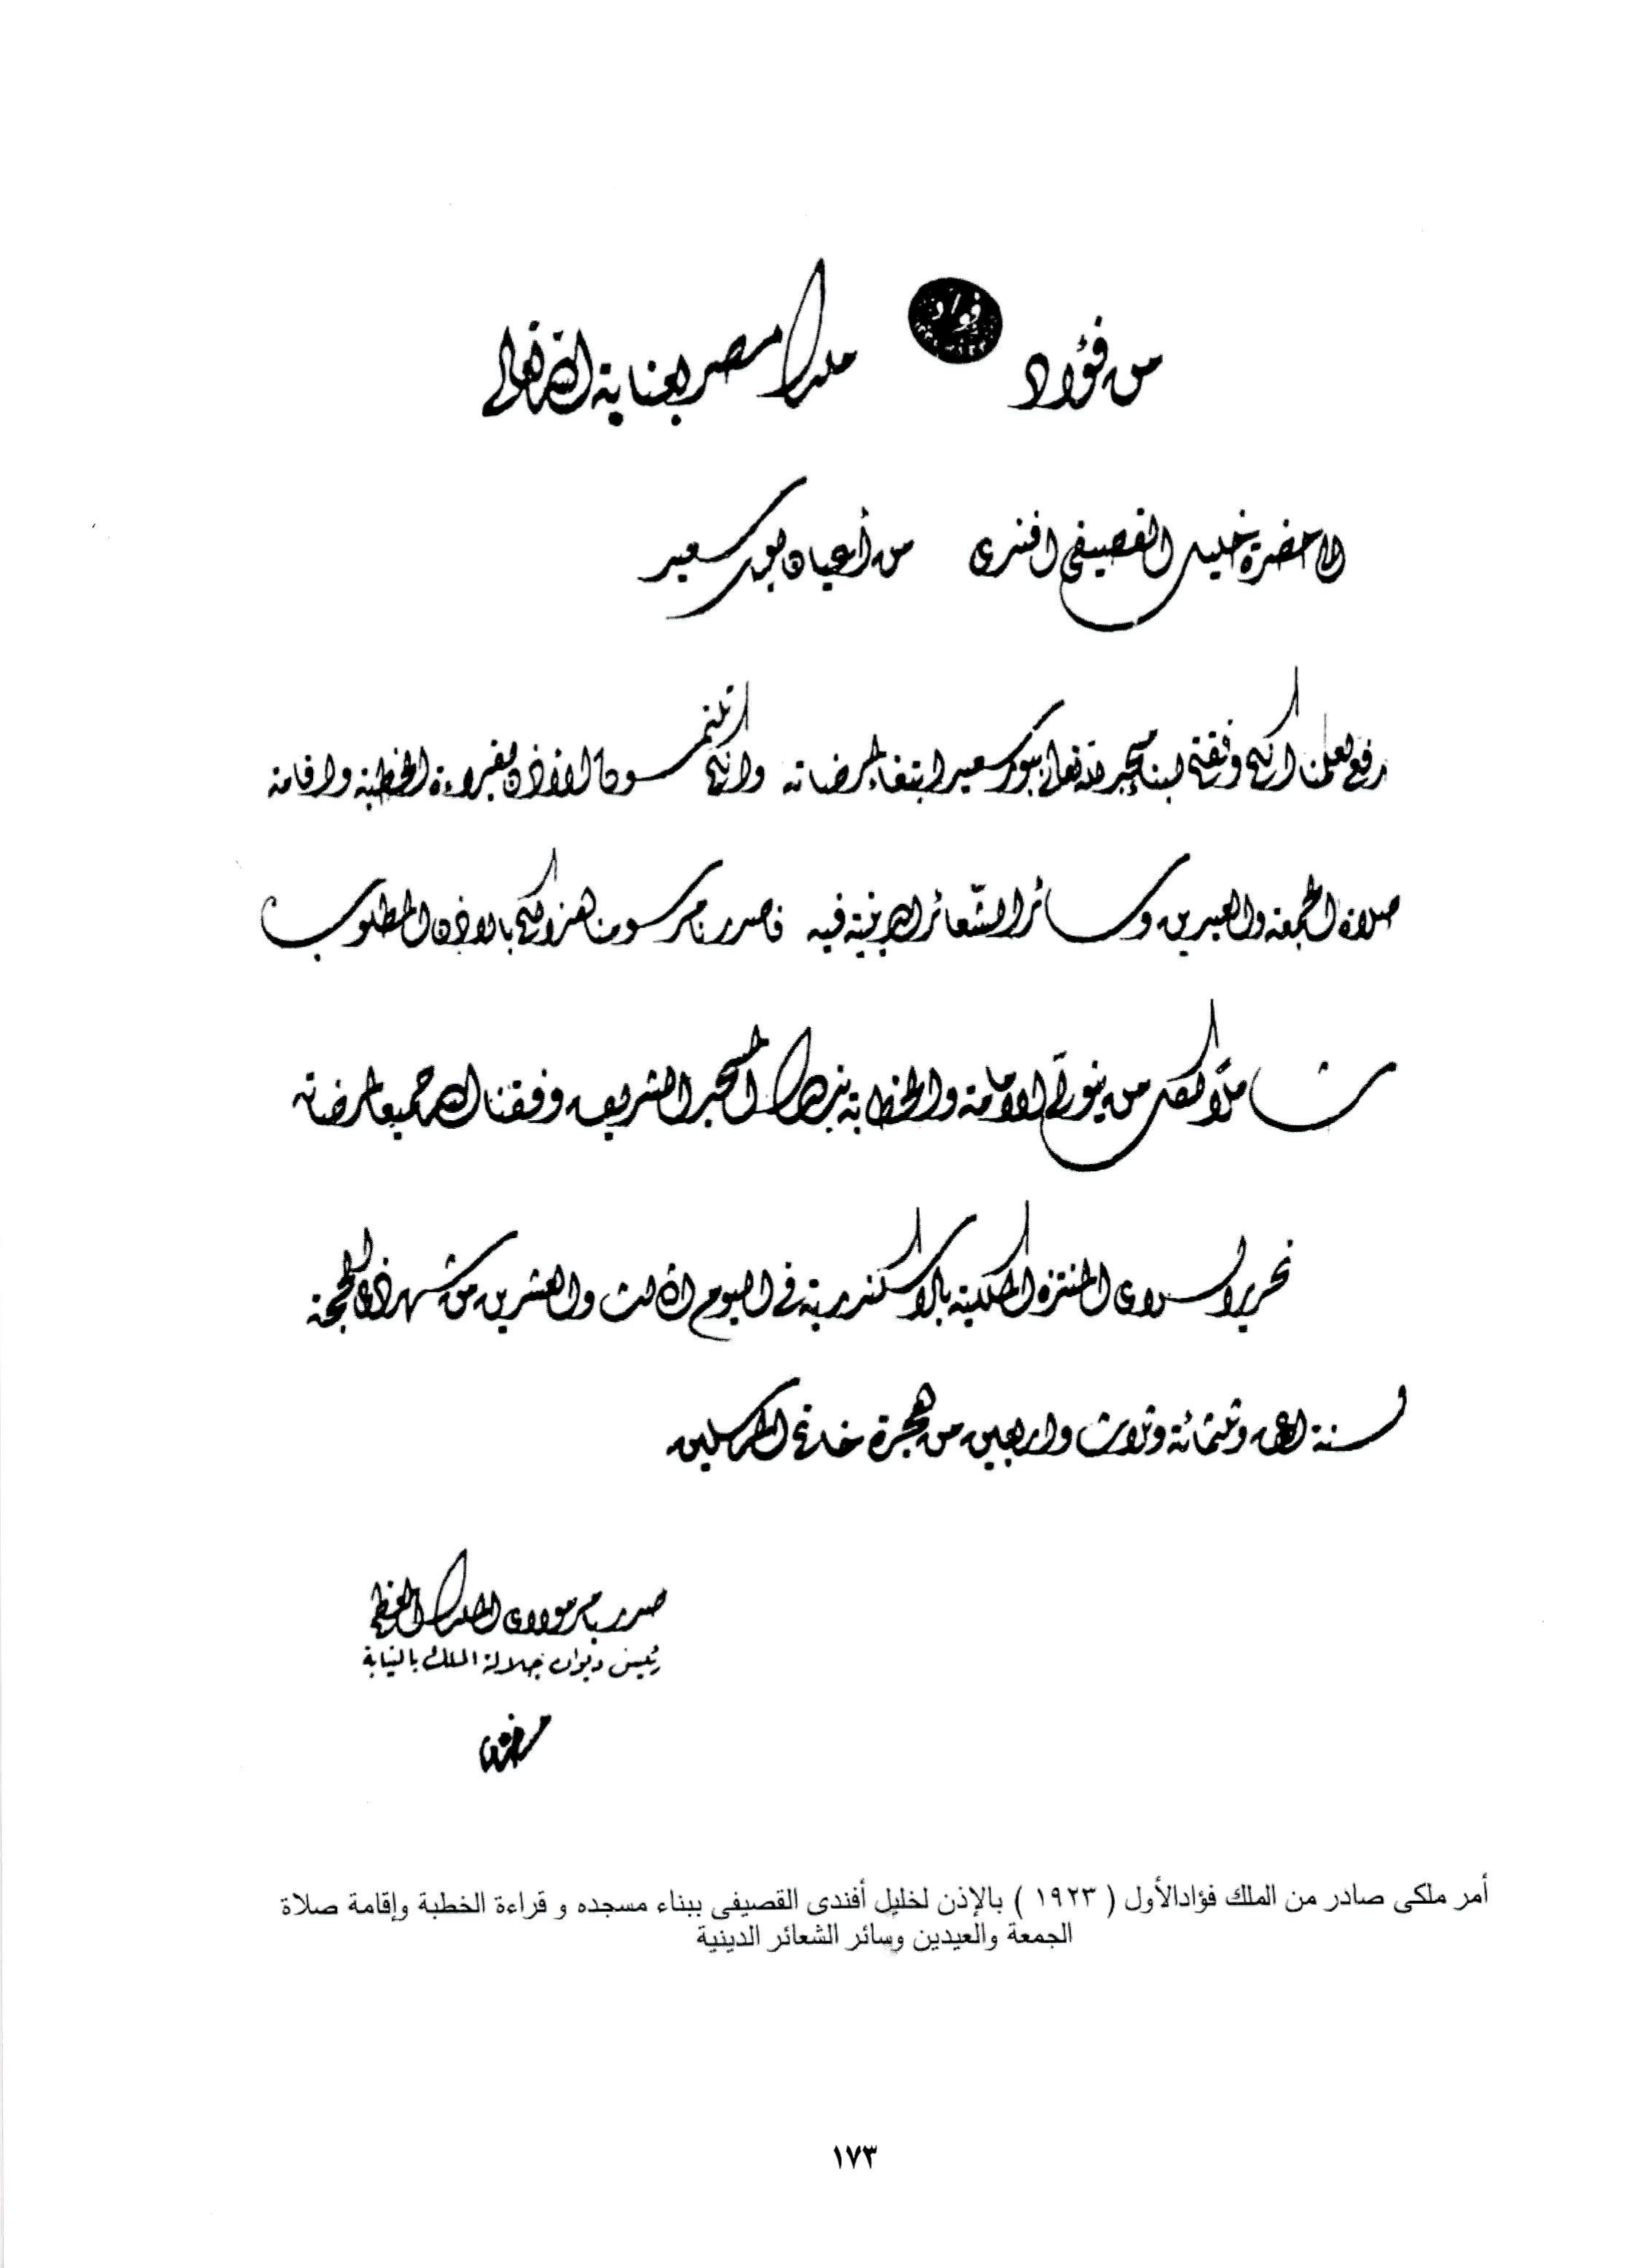 من فؤاد فؤاد ملك مصر بعناية الله تعالى
الى حضرة خليل القصيفى افندى من أعيان بورسعيد
رفع لعلمنا انكم وفقتم لبناء مسجد لله تعالى ببورسعيد ابتغاء لمرضاته وانكم تلتمسون الاذن بقراءة الخطبة واقامة
صلاة الجمعة والعيدين وسائر الشعائر الدينية فيه فاصدرنا مرسومنا هذا اليكم بالاذن المطلوب
شاملا لكل من يتولى الامامة والخطابة بذلك المسجد الشريف وفقنا الله جميعا لمرضاته
تحريرا بسراى المنتزه الملكية بالاسكندرية فى اليوم الثالث والعشرين من شهر ذى الحجة
لسنة الف وثلثمائة وثلاث واربعين من هجرة خاتم المرسلين
صدر بأمر مولاى الملك المعظم
رئيس ديوان جلالة الملك بالنيابة
أمر ملكى صادر من الملك فؤادالأول ( ١٩٢٣ ) بالإذن لخليل أفندى القصيفى ببناء مسجده و قراءة الخطبة وإقامة صلاة
الجمعة والعيدين وسائر الشعائر الدينية
١٧٣